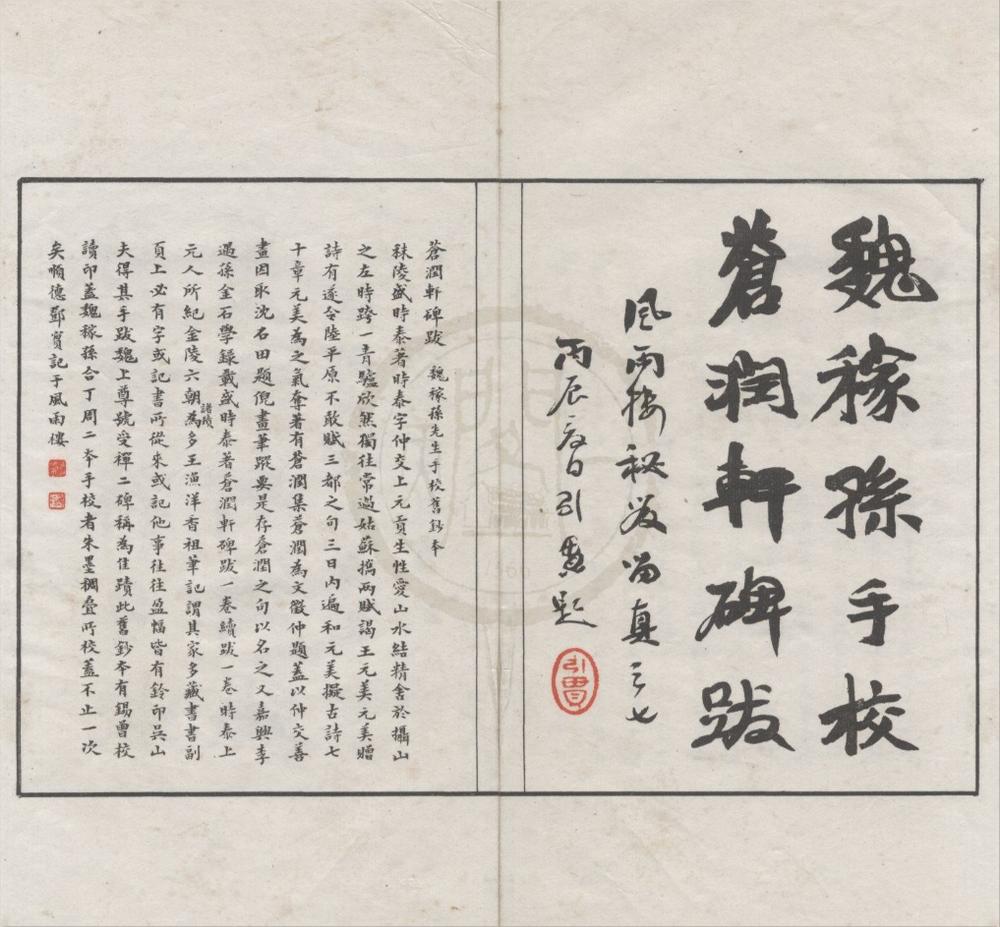 魏稼孫手校
蒼潤軒碑跋
風雨樓秘笈留真之七
丙辰夏日引題
蒼潤軒碑跋 魏稼孫先生手校舊鈔本
秣陵盛時泰著時泰字仲交上元貢生性愛山水結精舍於攝山
之左時跨一青驢欣然獨往常過姑蘇攜兩賦謁王元美元美贈
詩有遂令陸平原不敢賦三都之句三日內遍和元美擬古詩七
十章元美為之氣奪著有蒼潤集蒼潤為文徵仲題蓋以仲交善
畫因取沈石田題倪畫筆蹤要是存蒼潤之句以名之又嘉興李
遇孫金石學錄載盛時泰著蒼潤軒碑跋一卷續跋一卷時泰上
元人所紀金陵六朝諸蹟為多王漁洋香祖筆記謂其家多藏書書副
頁上必有字或記書所從來或記他事往往盈幅皆有鈐印吳山
夫得其手跋魏上尊號受禪二碑稱為佳蹟此舊鈔本有錫曾校
讀印蓋魏稼孫合丁周二本手校者朱墨稠疊所校蓋不止一次
矣順德鄧實記于風雨樓